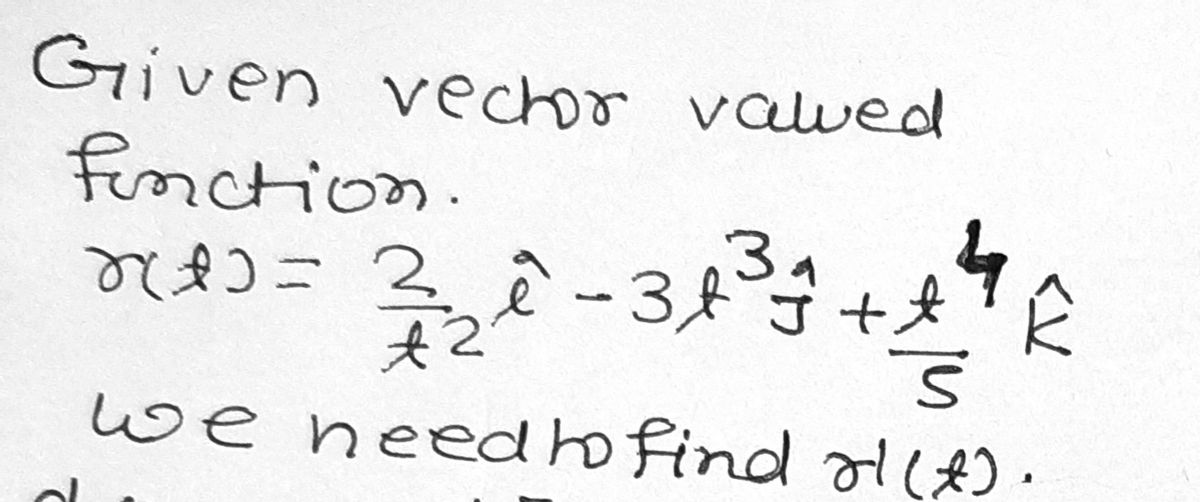 Given vector valued
function.
r(t) = 2/t² î - 3t³ ĵ + t⁴/5 k̂
we need to find r'(t).